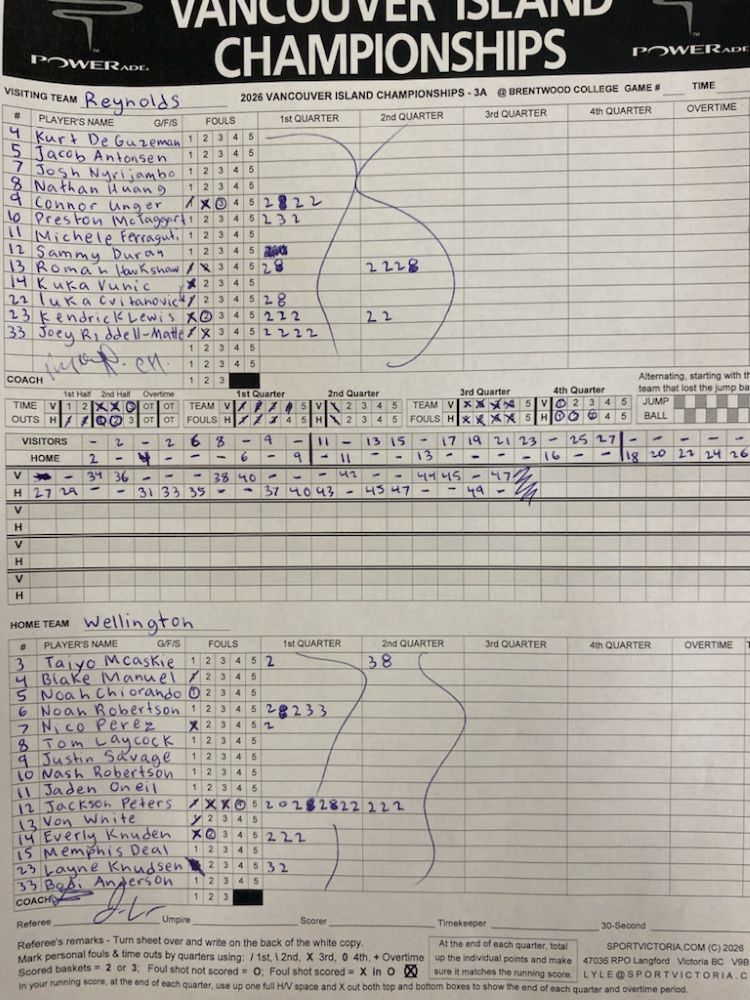 VANCOUVER ISLAND
CHAMPIONSHIPS
POWERADE
POWERADE
VISITING TEAM Reynolds 2026 VANCOUVER ISLAND CHAMPIONSHIPS - 3A @ BRENTWOOD COLLEGE GAME # TIME
# PLAYER'S NAME G/F/S FOULS 1st QUARTER 2nd QUARTER 3rd QUARTER 4th QUARTER OVERTIME
4 Kurt De Guzeman 1 2 3 4 5
5 Jacob Antonsen 1 2 3 4 5
7 Josh Nyrijambo 1 2 3 4 5
8 Nathan Huang 1 2 3 4 5
9 Connor Unger 4 5 2 2 2
10 Preston McTaggart 1 2 3 4 5 2 3 2
11 Michele Ferraguti 1 2 3 4 5
12 Sammy Duran 1 2 3 4 5
13 Roman Hawkshaw 3 4 5 2 8 2 2 2 8
14 Kuka Vunic 2 3 4 5
22 Luka Cvitanovic 2 3 4 5 2 8
23 Kendrick Lewis 3 4 5 2 2 2 2 2
33 Joey Riddell-Matte 3 4 5 2 2 2 2
1 2 3 4 5
1 2 3 4 5
COACH 1 2 3
Alternating, starting with th
team that lost the jump ba
1st Half 2nd Half Overtime 1st Quarter 2nd Quarter 3rd Quarter 4th Quarter
TIME V 1 2 OT OT TEAM V 5 V 2 3 4 5 TEAM V 5 V 2 3 4 5 JUMP
OUTS H 3 OT OT FOULS H 4 5 H 2 3 4 5 FOULS H 5 H 4 5 BALL
VISITORS - 2 - 2 6 8 - 9 - 11 - 13 15 - 17 19 21 23 - 25 27 - - - - -
HOME 2 - 4 - - - 6 - 9 - 11 - - 13 - - - - 16 - - 18 20 22 24 26
V - 34 36 - - - 38 40 - - - 42 - - 44 45 - 47
H 27 29 - - 31 33 35 - - 37 40 43 - 45 47 - - 49 -
V
H
V
H
V
H
HOME TEAM Wellington
# PLAYER'S NAME G/F/S FOULS 1st QUARTER 2nd QUARTER 3rd QUARTER 4th QUARTER OVERTIME
3 Taiyo Mcaskie 1 2 3 4 5 2 3 8
4 Blake Manuel 2 3 4 5
5 Noah Chiorando 2 3 4 5
6 Noah Robertson 1 2 3 4 5 2 8 2 3 3
7 Nico Perez 2 3 4 5 2
8 Tom Laycock 1 2 3 4 5
9 Justin Savage 1 2 3 4 5
10 Nash Robertson 1 2 3 4 5
11 Jaden Oneil 1 2 3 4 5
12 Jackson Peters 5 2 0 2 8 2 8 2 2 2 2 2
13 Von White 2 3 4 5
14 Everly Knuden 3 4 5 2 2 2
15 Memphis Deal 1 2 3 4 5
23 Layne Knudsen 2 3 4 5 3 2
33 Bodi Anderson 1 2 3 4 5
COACH 1 2 3
Referee Umpire Scorer Timekeeper 30-Second
Referee's remarks - Turn sheet over and write on the back of the white copy.
Mark personal fouls & time outs by quarters using: / 1st, \ 2nd, X 3rd, O 4th, + Overtime
Scored baskets = 2 or 3; Foul shot not scored = O; Foul shot scored = X in O
In your running score, at the end of each quarter, use up one full H/V space and X out both top and bottom boxes to show the end of each quarter and overtime period.
At the end of each quarter, total
up the individual points and make
sure it matches the running score.
SPORTVICTORIA.COM (C) 2026
47036 RPO Langford Victoria BC V9B
LYLE@SPORTVICTORIA.C